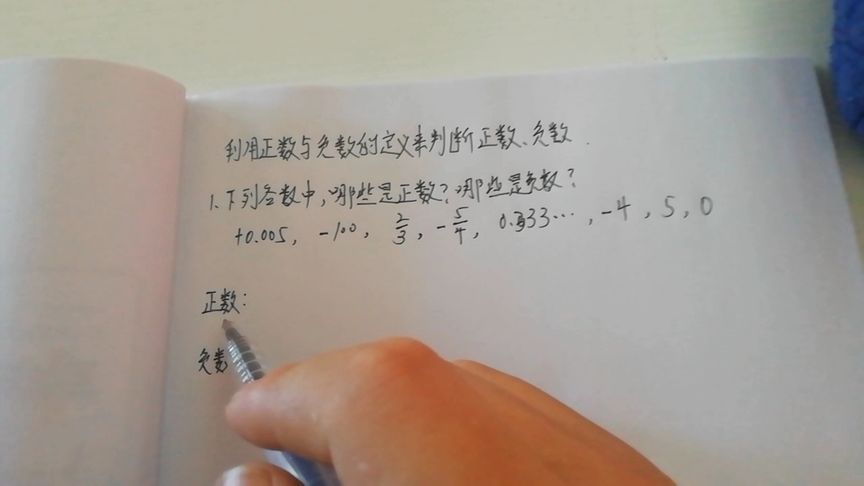 利用正数与负数的定义来判断正数、负数.
1.下列各数中,哪些是正数?哪些是负数?
+0.005, -100, 2/3, -5/4, 0.333…, -4, 5, 0
正数:
负数